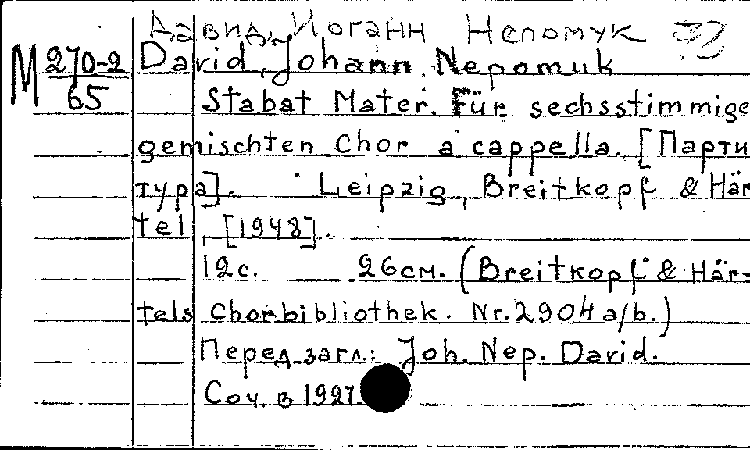 Давид, Иоганн Непомук
M 270-2 David, Johann Nepomuk
65 Stabat Mater. Für sechsstimmige
gemischten Chor a cappella. [Парти
тура]. Leipzig, Breitkopf & Här
tel, [1948].
12 с. 26 см. (Breitkopf & Här-
tels Chorbibliothek. Nr. 2904 a/b.)
Перед загл.: Joh. Nep. David.
Соч. в 1927.